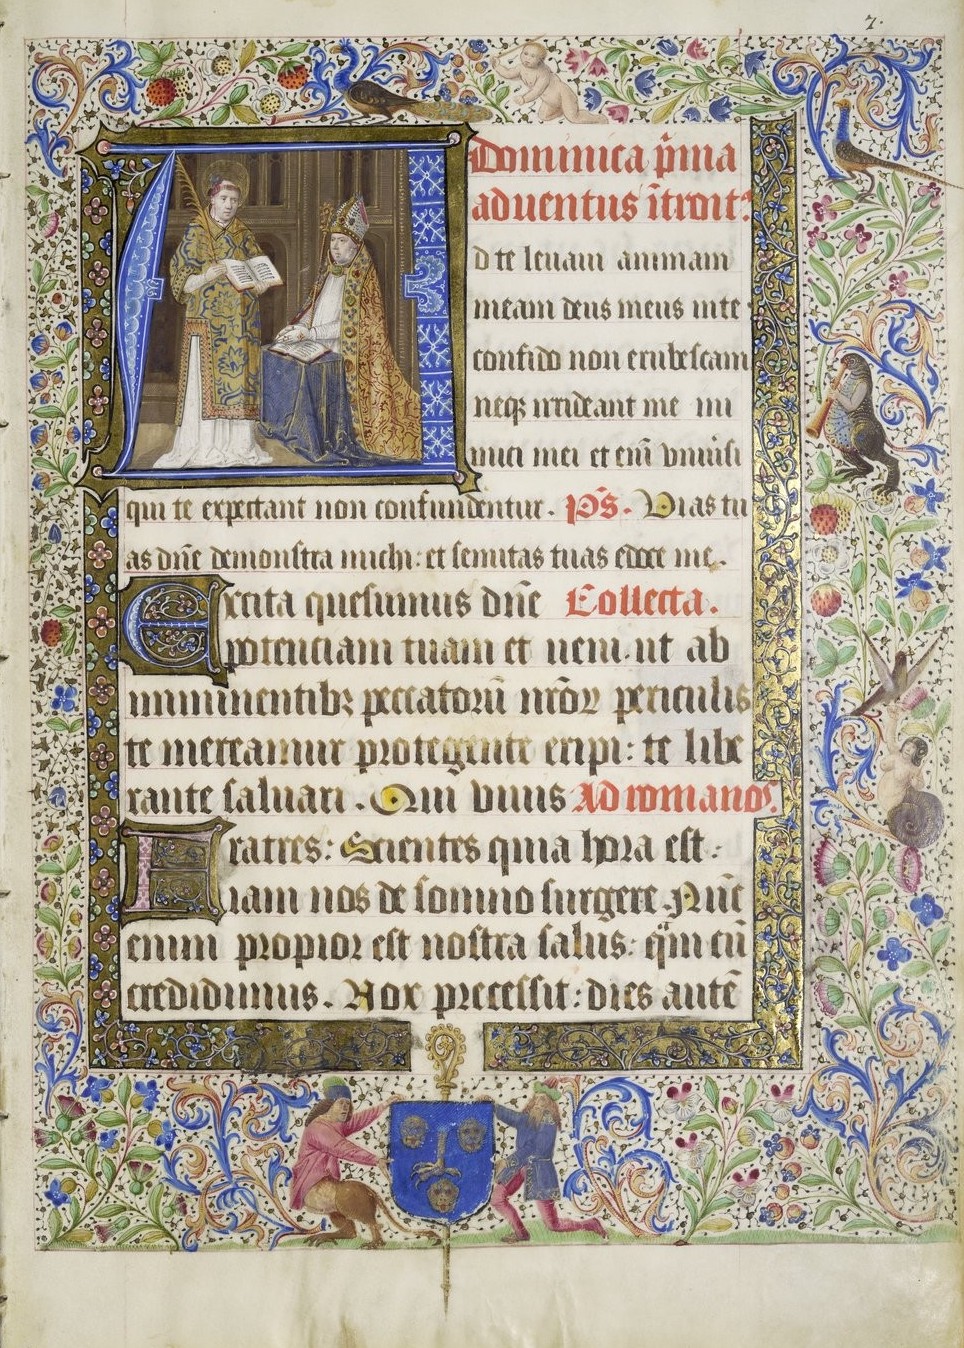 7.
Dominica p̄ma
aduentus ītroit⁹.
A d te leuaui animam
meam deus meus in te
confido non erubescam
neqꝫ irrideant me ini
mici mei et eni̅ vniuersi
qui te expectant non confundentur. Ps̄. Vias tu
as dn̄e demonstra michi: et semitas tuas edoce me.
Excita quesumus dn̄e Collecta.
potenciam tuam et ueni. ut ab
imminentibꝫ peccatorū nr̄oꝝ periculis
te mereamur protegente eripi: te libe
rante saluari. Qui viuis Ad romanos.
Fratres: Scientes quia hora est:
iam nos de somno surgere. Nūc
enim propior est nostra salus: qm̄ cū
credidimus. Nox precessit: dies autē